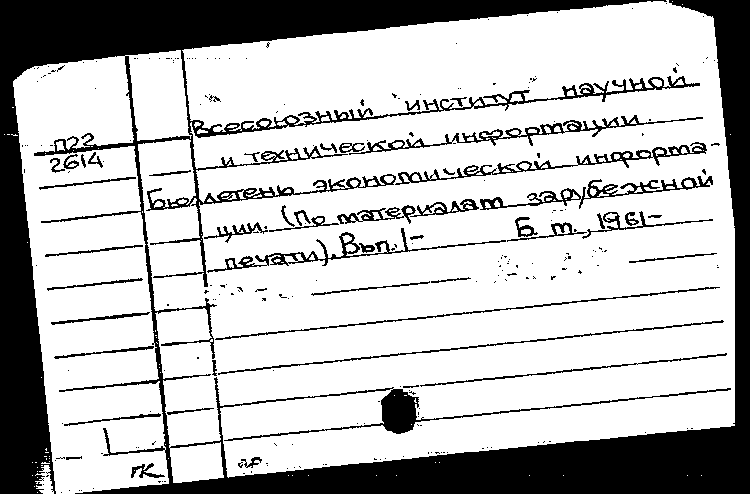 П22
2614
Всесоюзный институт научной
и технической информации.
Бюллетень экономической информа-
ции. (По материалам зарубежной
печати). Вып. 1- Б. м., 1961-
ГК